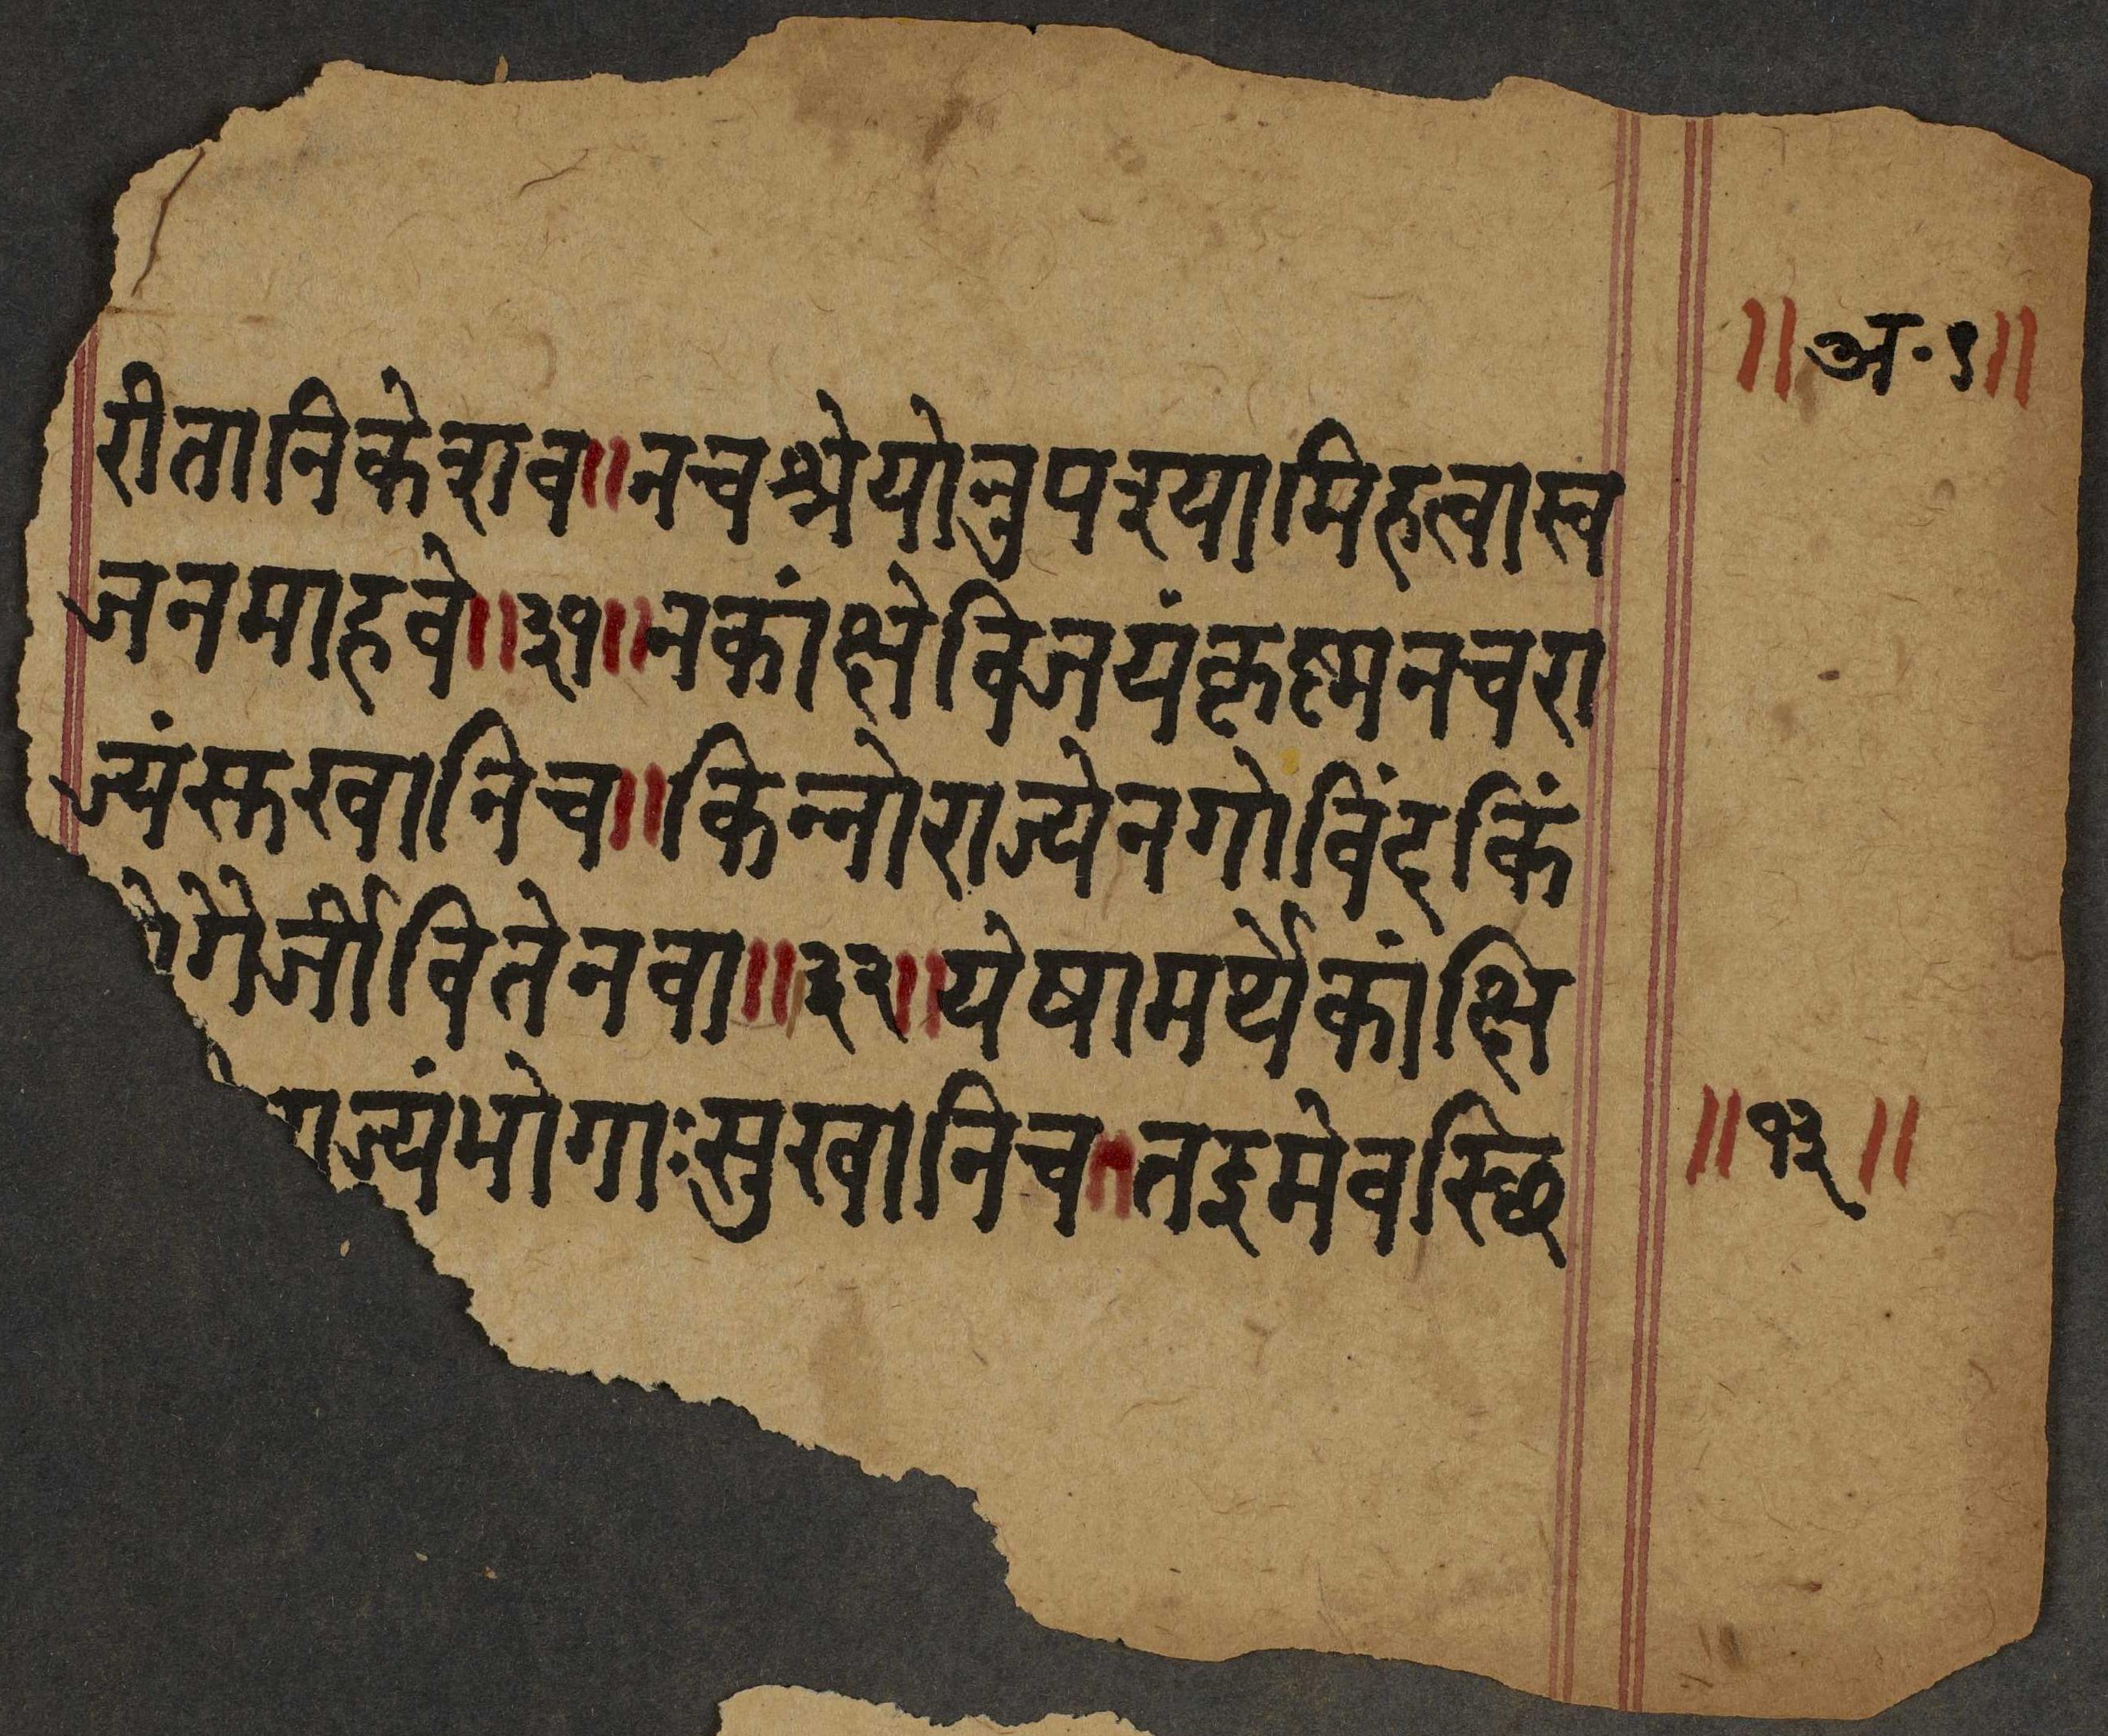 ॥अ·१॥
रीतानिकेशव॥नचश्रेयोनुपश्यामिहत्वास्व
जनमाहवे॥३१॥नकांक्षेविजयंकृष्मनचरा
ज्यंसुखानिच॥किन्नोराज्येनगोविंदकिं
गैर्जीवितेनवा॥३२॥येषामर्थेकांक्षि
राज्यंभोगाःसुखानिच॥तइमेवस्छि
॥१३॥